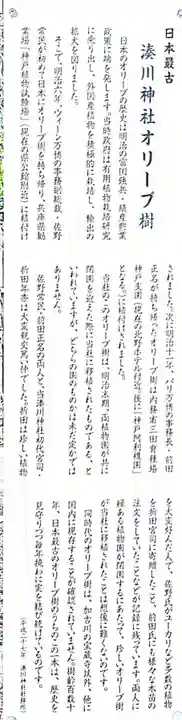 日本最古
湊川神社オリーブ樹
日本のオリーブの歴史は明治の富国強兵・殖産興業
政策に端を発します。当時政府は有用植物栽培研究
に乗り出し、外国産植物を積極的に栽培し、輸出の
拡大を図りました。
そこで、明治六年、ウィーン万博の事務副総裁・佐野
常民が初めて日本にオリーブ樹を持ち帰り、兵庫県勧
業場「神戸植物試験場」(現在の県公館附近)に植付け
されました。次に明治十一年、パリ万博の事務長・前田
正名が持ち帰ったオリーブ樹は内務省三田育種場
神戸支園(現在の北野ホテル付近、後に「神戸阿利襪園」
となる。)に植付けされました。
当社のこのオリーブ樹は、明治末期、両植物園が共に
閉園を迎えた際に当社に移植されたものである、と
伝えられていますが、どちらの園のものかは未だ定かでは
ありません。
佐野常民・前田正名の両人と、当湊川神社初代宮司・
折田年秀は大変親交篤い仲でした。折田は珍しい植物
を大変好んだ人で、佐野氏がユーカリなど多数の植物
を折田宮司に寄贈したこと、前田氏にも様々な木苗の
注文をしていたことなどが記録に残っています。両人に
縁ある植物園が閉園するにあたって、珍しいオリーブ樹
が当社に移植されたことは想像に難くないのです。
同時代のオリーブ樹は、加古川の宝蔵寺以外、他に
国内に現存することが確認されていません。樹齢百数十
年、日本最古のオリーブ樹のうちのこの一本は、歴史を
見守りつつ毎年秋に実を結び続けているのです。
(平成二十七年 湊川神社社務所)